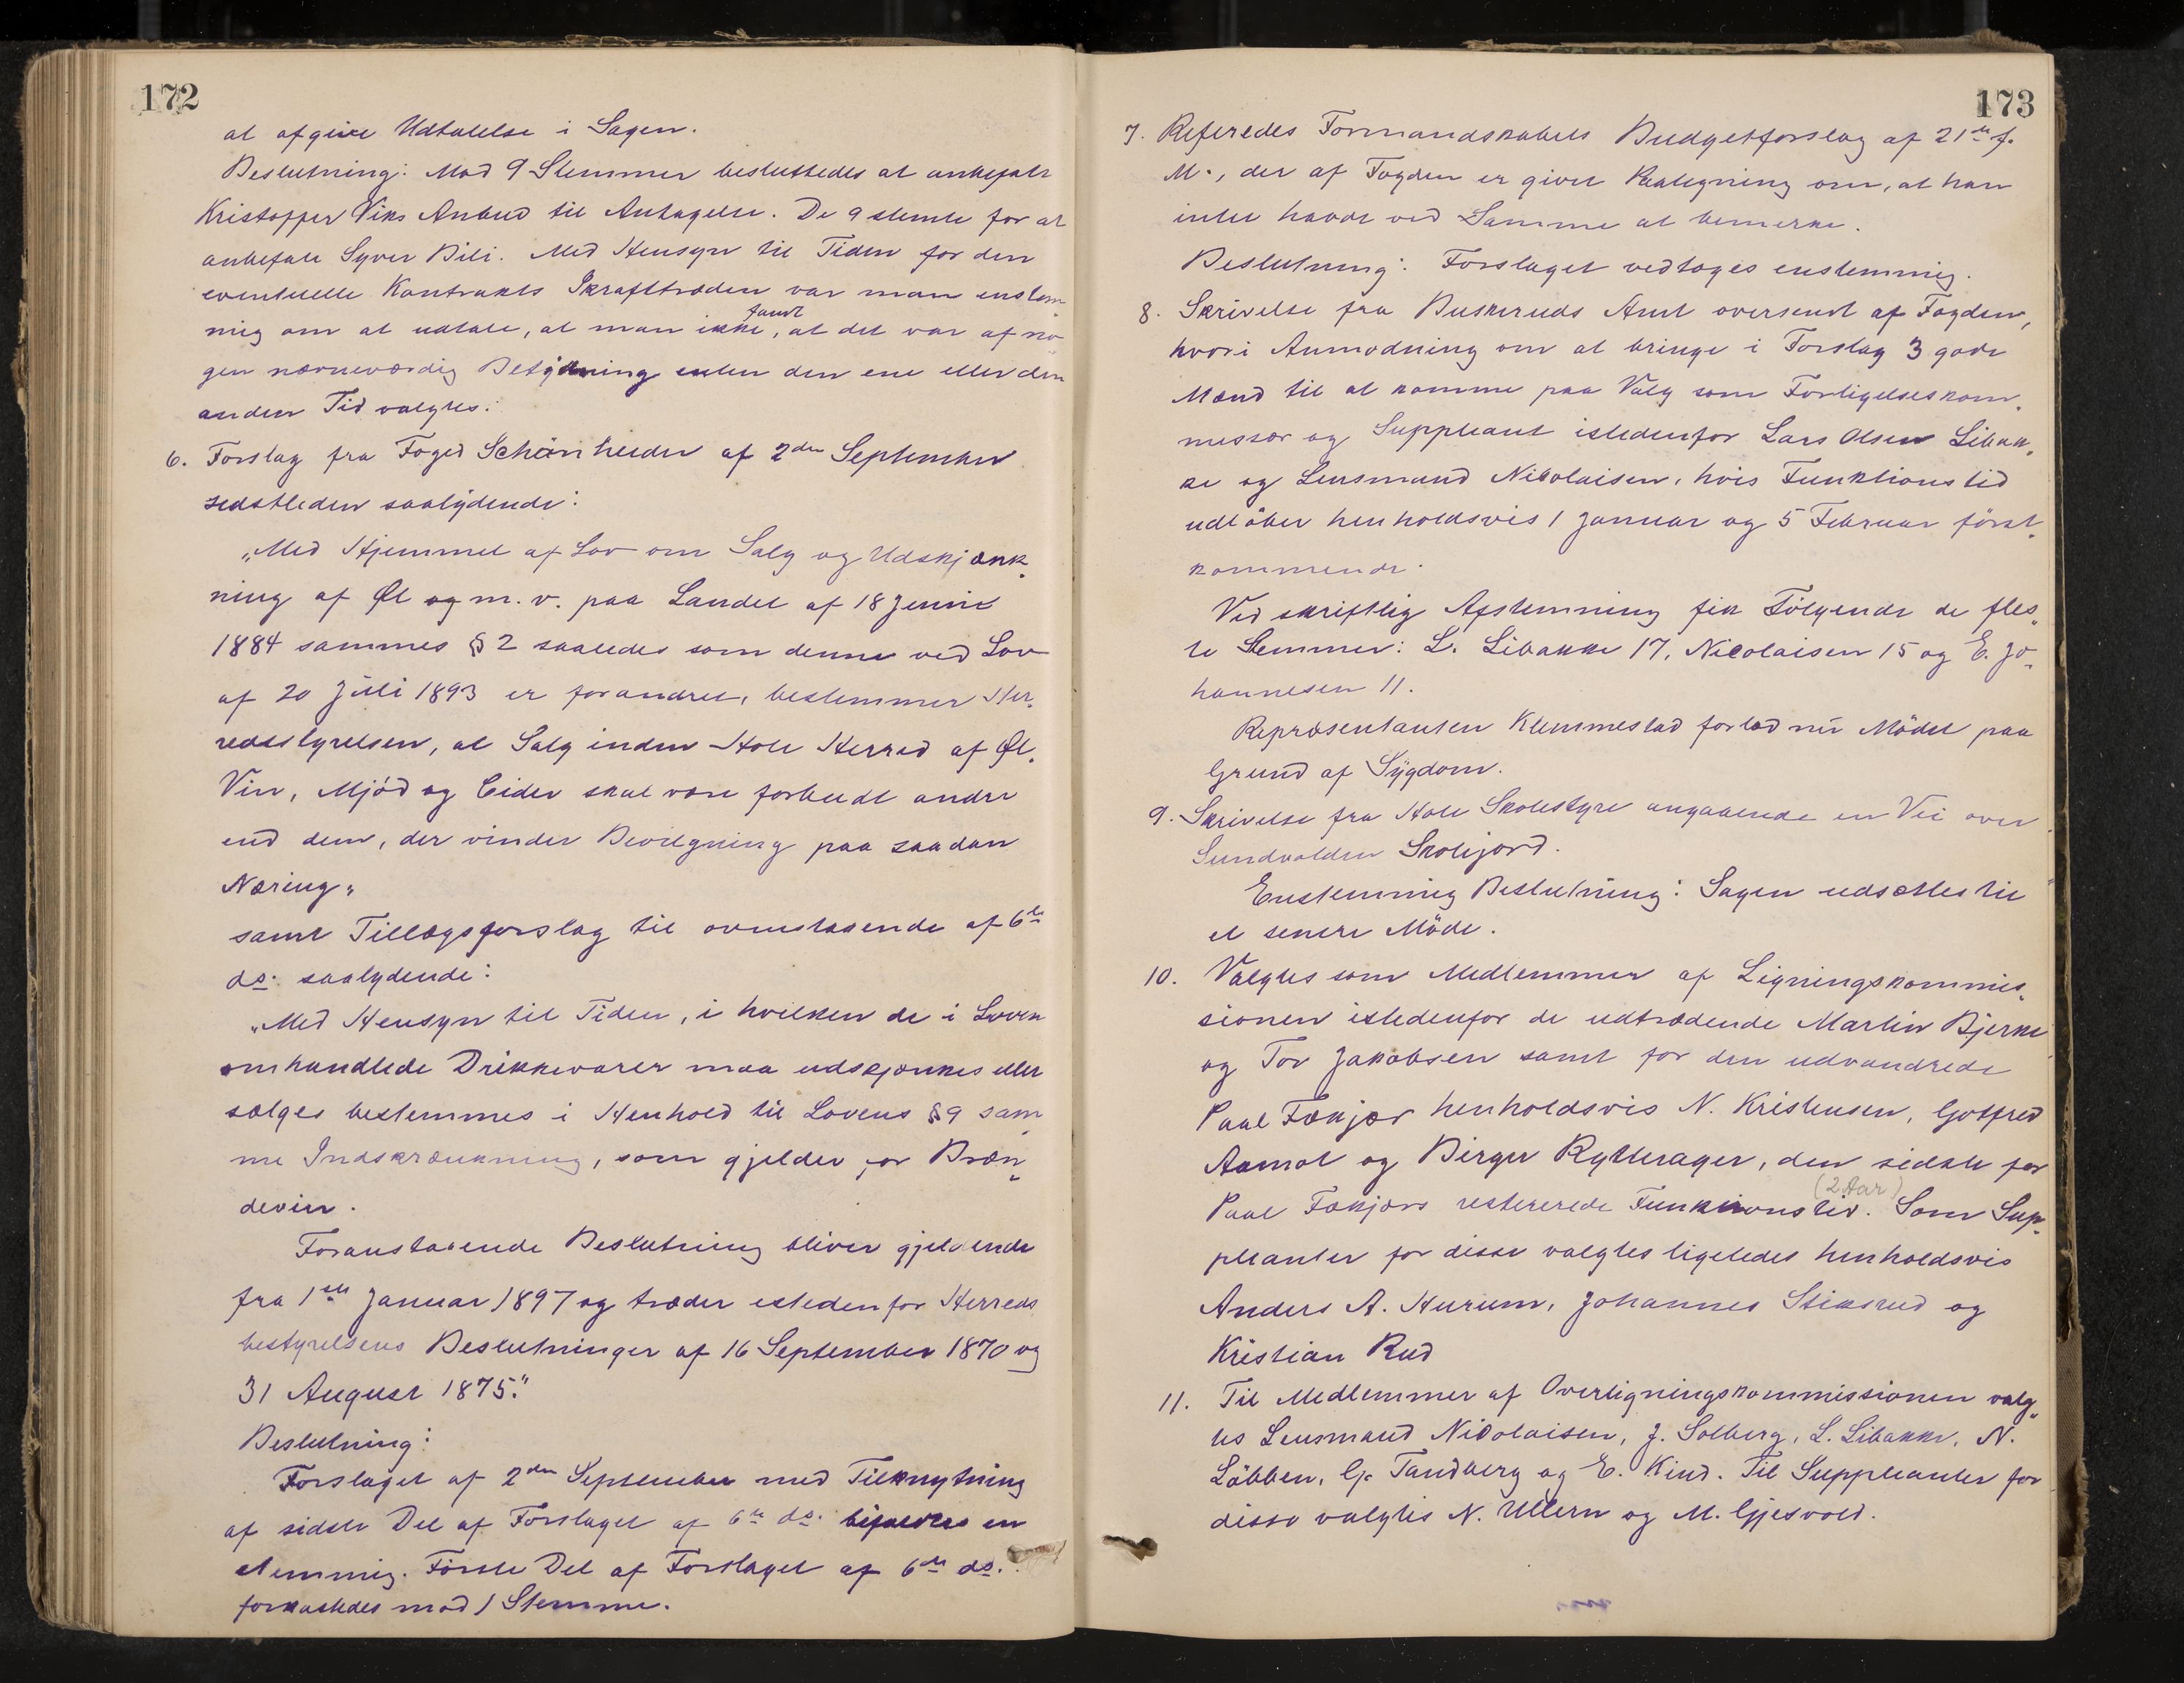 172
at afgive Udtalelse i Sagen.
Beslutning: Mod 9 Stemmer besluttedes at anbefale
Kristoffer Viks Anbud til Antagelse. De 9 stemte for at
anbefale Syver Bili. Med Hensyn til Tiden for den
eventuelle Kontrakts Ikrafttræden var man enstem„
mig om at udtale, at man ikke fandt, at det var af no„
gen nævneværdig Betydning enten den ene eller den
anden Tid valgtes.
6. Forslag fra Foged Schönheider af 2den September
sidstleden saalydende:
„Med Hjemmel af Lov om Salg og Udskjænk„
ning af Øl og m. v. paa Landet af 18 Juni
1884 sammes § 2 saaledes som denne ved Lov
af 20 Juli 1893 er forandret, bestemmer Her„
redsstyrelsen, at Salg inden Hole Herred af Øl,
Vin, Mjöd og Cider skal være forbudt andre
end dem, der vinder Bevilgning paa saadan
Næring„
samt Tillægsforslag til ovenstaaende af 6te
ds. saalydende:
„Med Hensyn til Tiden, i hvilken de i Loven
omhandlede Drikkevarer maa udskjænkes eller
sælges bestemmes i Henhold til Lovens § 9 sam
me Indskrænkning, som gjelder for Bræn„
devin.
Foranstaaende Beslutning bliver gjeldende
fra 1ste Januar 1897 og træder istedenfor Herreds
bestyrelsens Beslutninger af 16 September 1870 og
31 August 1875."
Beslutning:
Forslaget af 2den September med Tilknytning
af sidste Del af Forslaget af 6te ds. bifaldtes en
stemmig. Förste Del af Forslaget af 6te ds.
forkastedes mod 1 Stemme.
173
7. Refereredes Formandskabets Budgetforslag af 21de f.
M., der af Fogden er givet Paategning om, at han
intet havde ved Samme at bemerke.
Beslutning: Forslaget vedtoges enstemmig.
8. Skrivelse fra Buskeruds Amt oversendt af Fogden,
hvori Anmodning om at bringe i Forslag 3 gode
Mænd til at komme paa Valg som Forligelseskom„
missær og Suppleant istedenfor Lars Olsen Libak„
ke og Lensmand Nikolaisen, hvis Funktionstid
udlöber henholdsvis 1 Januar og 5 Februar först„
kommende.
Ved skriftlig Afstemning fik Fölgende de fles„
te Stemmer: L. Libakke 17, Nicolaisen 15 og E. Jo„
hannesen 11.
Repræsentanten Klemmestad forlod nu Mödet paa
Grund af Sygdom.
9. Skrivelse fra Hole Skolestyre angaaende en Vei over
Sundvolden Skolejord.
Enstemmig Beslutning: Sagen udsættes til
et senere Möde.
10. Valgtes som Medlemmer af Ligningskommis„
sionen istedenfor de udtrædende Martin Bjerke
og Tor Jakobsen samt for den udvandrede
Paal Fækjær henholdsvis N. Kristensen, Gotfred
Aamot og Birger Rytterager, den sidste for
Paal Fækjærs resterende Funktionstid (2 Aar). Som Sup„
pleanter for disse valgtes ligeledes henholdsvis
Anders A. Hurum, Johannes Stiksrud og
Kristian Rud
11. Til Medlemmer af Overligningskommissionen valg„
tes Lensmand Nikolaisen, J. Solberg, L. Libakke, N.
Löbben, G. Tandberg og E. Kind. Til Suppleanter for
disse valgtes N. Ullern og M. Gjesvold.